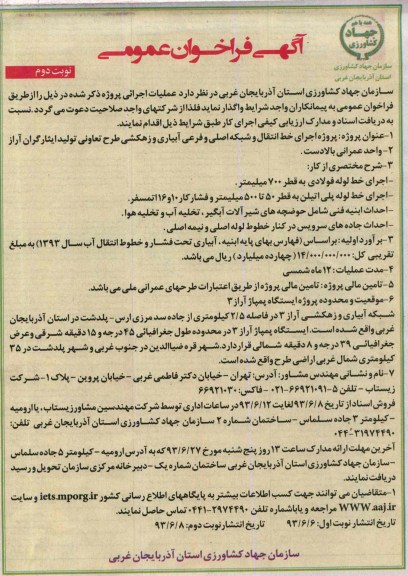 همه با هم
جهاد
کشاورزی
سازمان جهاد کشاورزی
استان آذربایجان غربی
آگهی فراخوان عمومی
نوبت دوم
سازمان جهاد کشاورزی استان آذربایجان غربی در نظر دارد عملیات اجرائی پروژه ذکر شده در ذیل را از طریق
فراخوان عمومی به پیمانکاران واجد شرایط واگذار نماید فلذا از شرکتهای واجد صلاحیت دعوت می گردد. نسبت
به دریافت اسناد و مدارک ارزیابی کیفی اجرای کار طبق شرایط ذیل اقدام نمایند.
۱-عنوان پروژه: پروژه اجرای خط انتقال و شبکه اصلی و فرعی آبیاری و زهکشی طرح تعاونی تولید ایثارگران آراز
۲-واحد عمرانی بالادست.
۳-شرح مختصری از کار:
-اجرای خط لوله فولادی به قطر ۷۰۰ میلیمتر.
-اجرای خط لوله پلی اتیلن به قطر ۵۰ تا ۵۰۰ میلیمتر و فشار کار ۱۰ و ۱۶ اتمسفر.
-احداث ابنیه فنی شامل حوضچه های شیر آلات آبگیر، تخلیه آب و تخلیه هوا.
-احداث جاده های سرویس در کنار خطوط لوله اصلی و نیمه اصلی.
۳-برآورد اولیه: براساس (فهارس بهای پایه ابنیه، آبیاری تحت فشار و خطوط انتقال آب سال ۱۳۹۳) به مبلغ
تقریبی کل: ۱۴/۰۰۰/۰۰۰/۰۰۰ (چهارده میلیارد) ریال می باشد.
۴-مدت عملیات: ۱۲ ماه شمسی
۵-تامین مالی پروژه: تامین مالی پروژه از طریق اعتبارات طرحهای عمرانی ملی می باشد.
۶-موقعیت و محدوده پروژه ایستگاه پمپاژ آراز ۳
شبکه آبیاری و زهکشی آراز ۳ در فاصله ۲/۵ کیلومتری از جاده سد مرزی ارس - پلدشت در استان آذربایجان
غربی واقع شده است. ایستگاه پمپاژ آراز ۳ در محدوده طول جغرافیائی ۴۵ درجه و ۱۵ دقیقه شرقی و عرض
جغرافیائی ۳۹ درجه و ۸ دقیقه شمالی قرار دارد. شهر قره ضیاالدین در جنوب غربی و شهر پلدشت در ۳۵
کیلومتری شمال غربی اراضی طرح واقع شده است.
۷-نام و نشانی مهندس مشاور: آدرس: تهران - خیابان دکتر فاطمی غربی - خیابان پروین - پلاک ۱ - شرکت
زیستاب - تلفن ۵-۶۶۹۲۱۰۹۱-۰۲۱ - فاکس: ۶۶۹۲۱۰۳۰
فروش اسناد از تاریخ ۹۳/۶/۸ لغایت ۹۳/۶/۱۲ در ساعات اداری توسط شرکت مهندسین مشاور زیستاب، یا ارومیه
- کیلومتر ۳ جاده سلماس - ساختمان شماره ۲ سازمان جهاد کشاورزی استان آذربایجان غربی تلفن:
۰۴۴-۳۱۹۷۴۴۹۰
آخرین مهلت ارائه مدارک ساعت ۱۳ روز پنج شنبه مورخ ۹۳/۶/۲۷ که به آدرس ارومیه - کیلومتر ۵ جاده سلماس
-سازمان جهاد کشاورزی استان آذربایجان غربی ساختمان شماره یک - دبیرخانه مرکزی سازمان تحویل و رسید
دریافت نمایند.
۱-متقاضیان می توانند جهت کسب اطلاعات بیشتر به پایگاههای اطلاع رسانی کشور iets.mporg.ir و سایت
WWW.aaj.ir مراجعه و یا باشماره تلفن ۲۹۷۴۴۹۰-۰۴۴۱ تماس حاصل نمایند.
تاریخ انتشار نوبت اول: ۹۳/۶/۶ تاریخ انتشار نوبت دوم: ۹۳/۶/۸
سازمان جهاد کشاورزی استان آذربایجان غربی